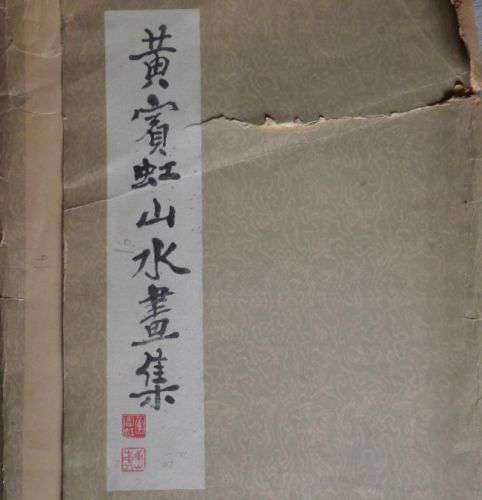 黃賓虹山水畫集